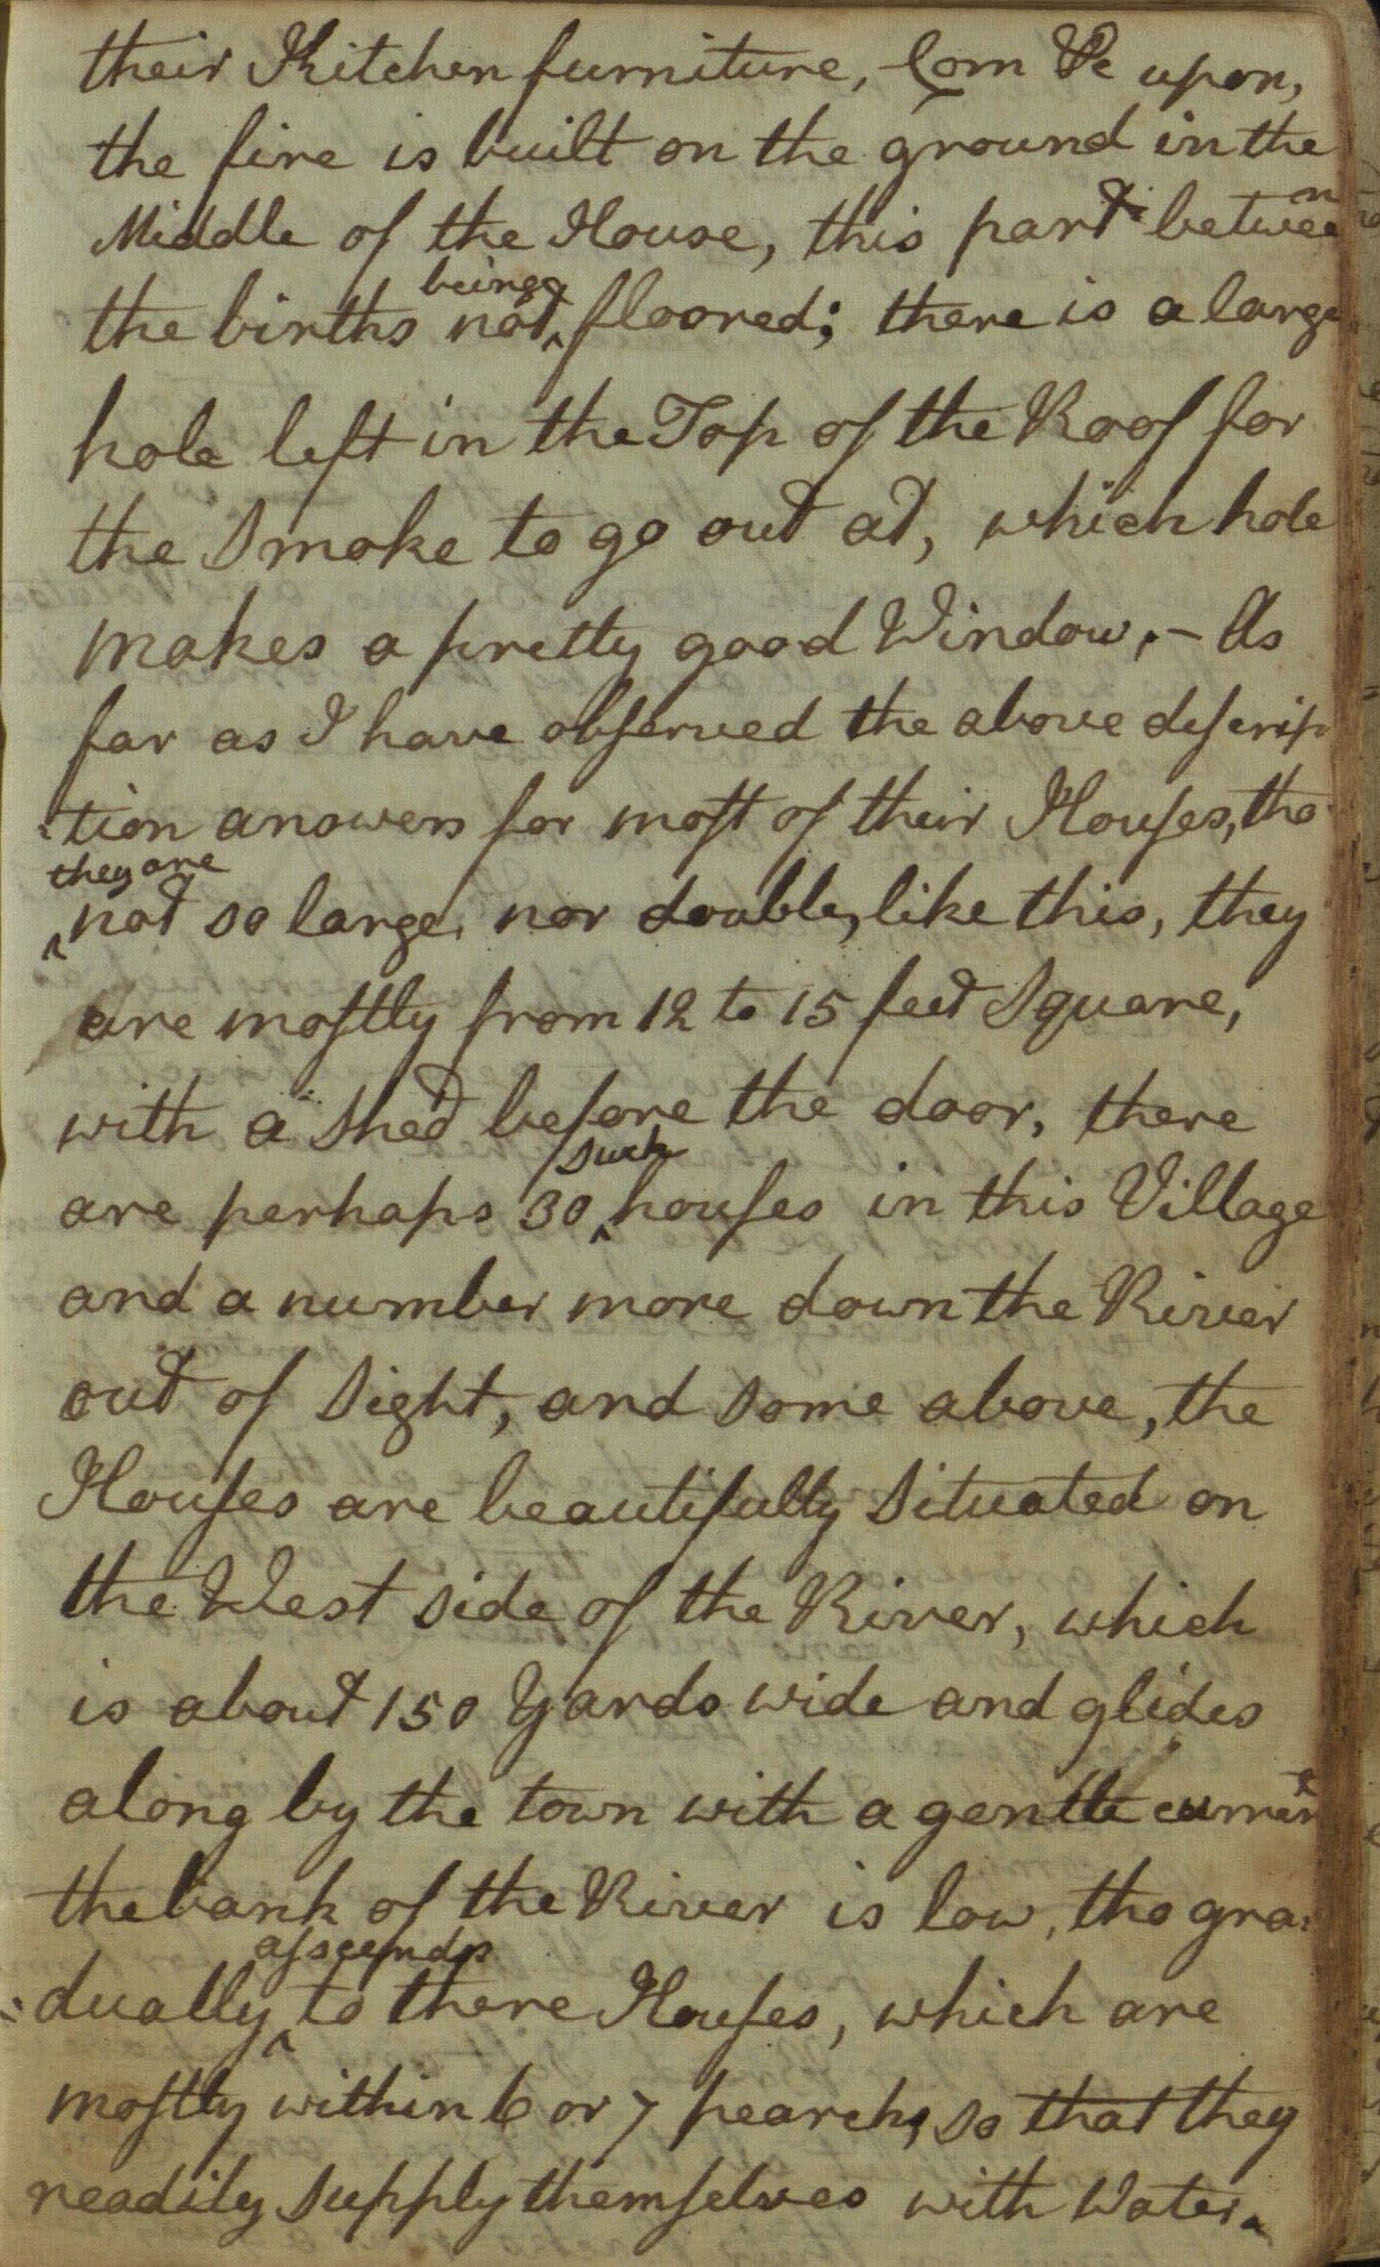 their Kitchen furniture, Corn &c upon,
the fire is built on the ground in the
Middle of the House, this part between
being
the births not floored; there is a large
hole left in the Top of the Roof for
the Smoke to go out at, which hole
makes a pretty good Window. – As
far as I have obſerved the above deſcrip
:tion answers for moſt of their Houſes, tho
they are
not so large, nor double, like this, they
are moſtly from 12 to 15 feet Square,
with a Shed before the door, there
such
are perhaps 30 houſes in this Village
and a number more down the River
out of Sight, and some above, the
Houſes are beautifully Situated on
the West side of the River, which
is about 150 Yards wide and glides
along by the town with a gentle current
the bank of the River is low, tho gra:
aſscends
:dually to there Houſes, which are
moſtly within 6 or 7 pearchs, so that they
readily Supply themſelves with Water.